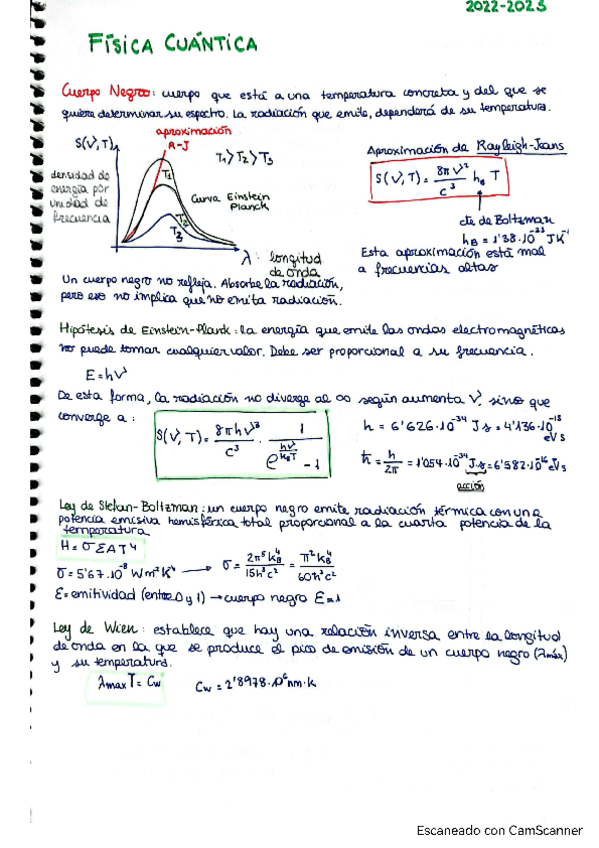 2022-2023
FÍSICA CUÁNTICA
Cuerpo Negro: cuerpo que está a una temperatura concreta y del que se
quiere determinar su espectro. La radiación que emite, dependerá de su temperatura.
aproximación
R-J
S(ν,T)
T₁>T₂>T₃
densidad de
energía por
unidad de
frecuencia
T₁
T₂
T₃
Curva Einstein
Planck
λ: longitud
de onda
Aproximación de Rayleigh-Jeans
S(ν,T) = 8πν²/c³ h_B T
cte de Boltzman
h_B = 1'38·10⁻²³ JK⁻¹
Esta aproximación está mal
a frecuencias altas
Un cuerpo negro no refleja. Absorbe la radiación,
pero eso no implica que no emita radiación.
Hipótesis de Einstein-Plank: la energía que emite las ondas electromagnéticas
no puede tomar cualquier valor. Debe ser proporcional a su frecuencia.
E=hν
De esta forma, la radiación no diverge al ∞ según aumenta ν, sino que
converge a:
S(ν,T) = 8πhν³/c³ · 1/(e^(hν/k_BT) - 1)
h = 6'626·10⁻³⁴ J s = 4'136·10⁻¹⁵ eV s
ħ = h/2π = 1'054·10⁻³⁴ J·s = 6'582·10⁻¹⁶ eVs
acción
Ley de Stefan-Boltzman: un cuerpo negro emite radiación térmica con una
potencia emisiva hemisférica total proporcional a la cuarta potencia de la
temperatura
H = σ ε A T⁴
σ = 5'67·10⁻⁸ W m² K⁴ → σ = 2π⁵k_B⁴/15h³c² = π²k_B⁴/60ħ³c²
ε = emitividad (entre 0 y 1) → cuerpo negro ε=1
Ley de Wien: establece que hay una relación inversa entre la longitud
de onda en la que se produce el pico de emisión de un cuerpo negro (λmáx)
y su temperatura.
λmax T = Cw
Cw = 2'8978·10⁶ nm·k
Escaneado con CamScanner